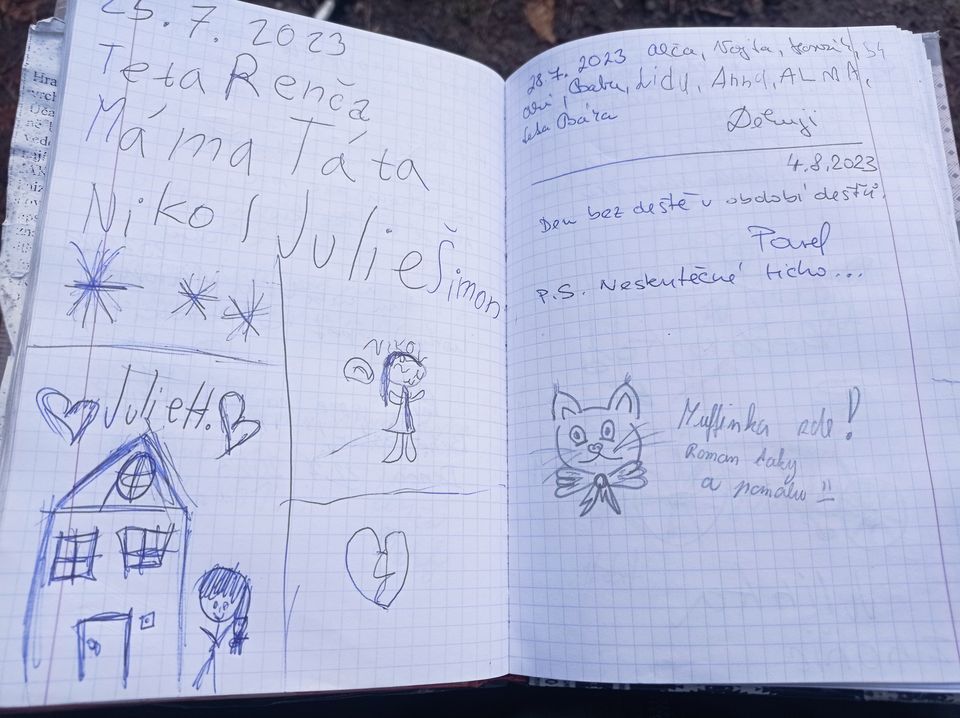 25.7.2023
Teta Renča
Máma Táta
Nikol Julie Šimon
Niko
Julie H.
28.7. 2023 Alča, Vojta,
Lidy, Anny, ALMA,
teta Bára
Děkuji
4.8.2023
Den bez deště v období dešťů.
Pavel
P.S. Neskutečné ticho...
Muffinka zde!
Roman taky
a pomalu !!